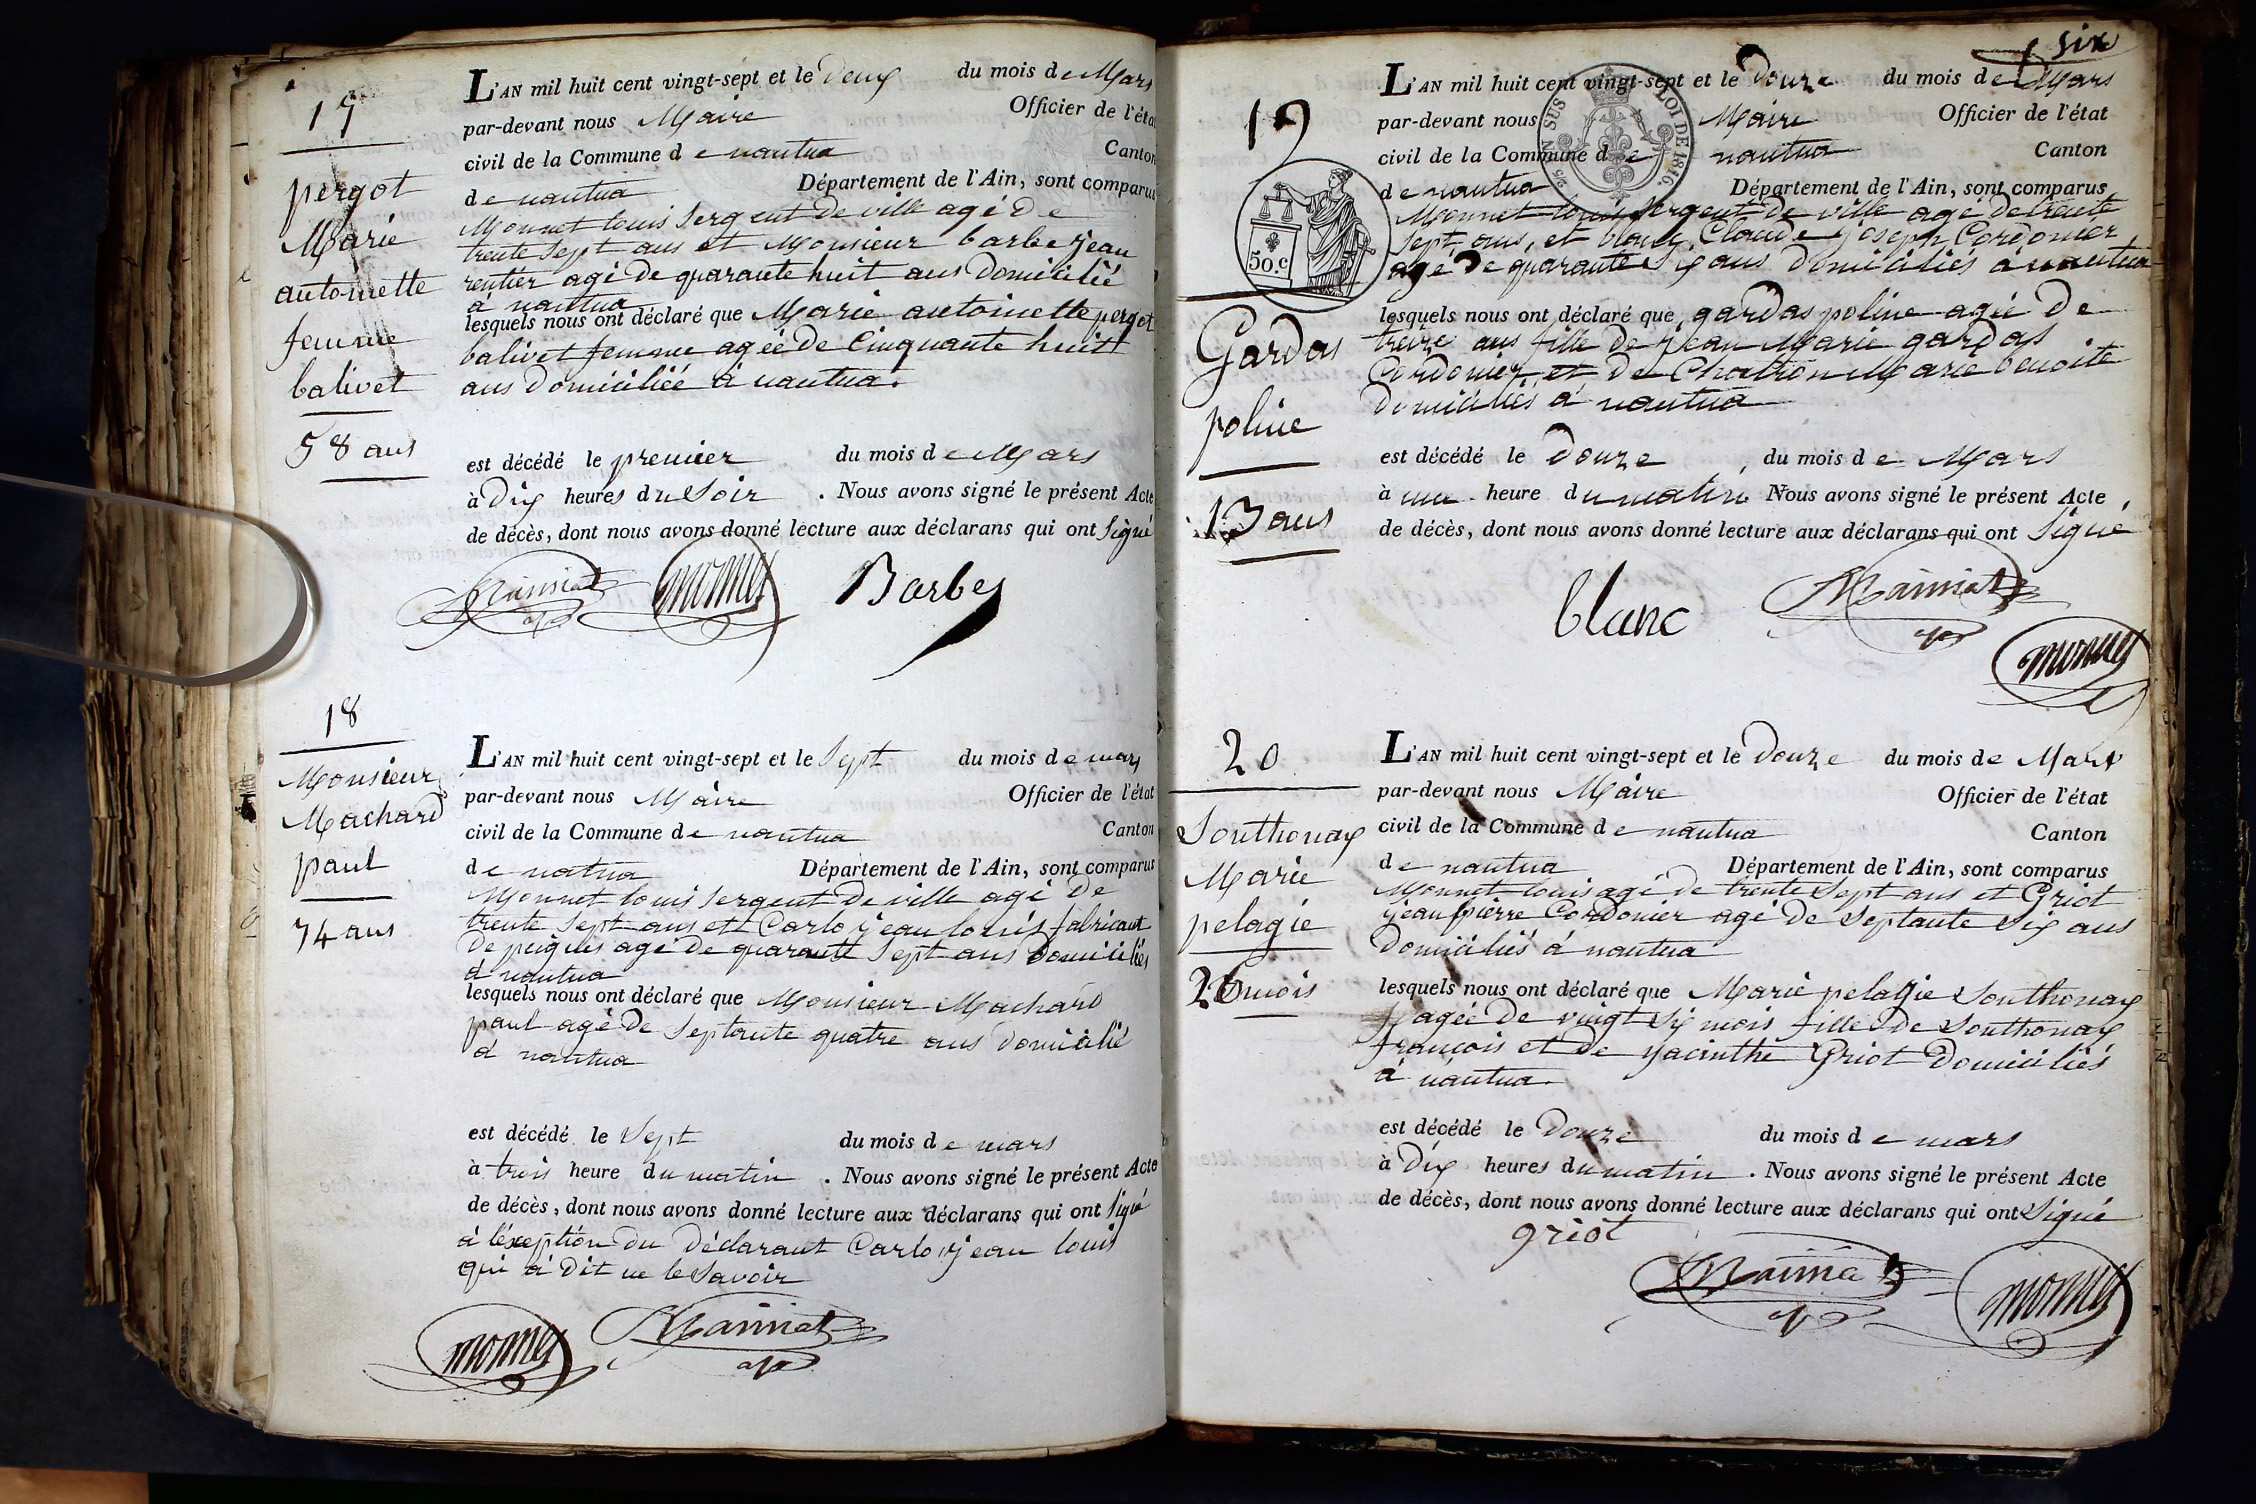 17
pergot
Marie
antoinette
femme
balivet
58 ans
L'AN mil huit cent vingt-sept et le deux du mois de Mars
par-devant nous Maire Officier de l'état
civil de la Commune de nantua Canton
de nantua Département de l'Ain, sont comparus
Monnet louis Sergent de ville agé de
trente Sept ans et Monsieur barbe jean
rentier agé de quarante huit ans domicilié
à nantua
lesquels nous ont déclaré que Marie antoinette pergot
balivet femme agée de Cinquante huit
ans domiciliéé à nantua.
est décédé le premier du mois de Mars
à dix heures du Soir . Nous avons signé le présent Acte
de décès, dont nous avons donné lecture aux déclarans qui ont Signé
monnet Barbe
18
Monsieur
Machard
paul
74 ans
L'AN mil huit cent vingt-sept et le Sept du mois de mars
par-devant nous Maire Officier de l'état
civil de la Commune de nantua Canton
de natua Département de l'Ain, sont comparus
Monnet louis Sergent de ville agé de
trente Sept ans et Carlo jean louis fabricant
de peignes agé de quarante Sept ans domiciliés
à nantua
lesquels nous ont déclaré que Monsieur Machard
paul agé de Septante quatre ans domicilié
à nantua
est décédé le Sept du mois de mars
à trois heure du matin . Nous avons signé le présent Acte
de décès, dont nous avons donné lecture aux déclarans qui ont Signé
à l'éxception du déclarant Carlo jean louis
qui à dit ne le Savoir
monnet
six
19
50.C
Gardas
poline
13 ans
L'AN mil huit cent vingt-sept et le douze du mois de Mars
par-devant nous Maire Officier de l'état
civil de la Commune de nantua Canton
de nantua Département de l'Ain, sont comparus
EN SUS LOI DE 1816.
Monnet louis Sergent de ville agé de trente
Sept ans, et blanc Claude joseph Cordonier
agé de quarante Six ans domiciliés à nantua
lesquels nous ont déclaré que gardas poline agée de
treize ans fille de jean Marie gardas
Cordonier et de Chatron Marie benoite
domiciliés à nantua
est décédé le douze du mois de Mars
à une heure du matin. Nous avons signé le présent Acte
de décès, dont nous avons donné lecture aux déclarans qui ont Signé
blanc
monnet
20
Southonax
Marie
pelagie
26 mois
L'AN mil huit cent vingt-sept et le douze du mois de Mars
par-devant nous Maire Officier de l'état
civil de la Commune de nantua Canton
de nantua Département de l'Ain, sont comparus
Monnet louis agé de trente Sept ans et Griot
jean pierre Cordonier agé de Septante Six ans
domiciliés à nantua
lesquels nous ont déclaré que Marie pelagie Southonax
agée de vingt Six mois fille de Southonax
françois et de jacinthe Griot domiciliés
à nantua.
est décédé le douze du mois de mars
à dix heures du matin . Nous avons signé le présent Acte
de décès, dont nous avons donné lecture aux déclarans qui ont Signé
griot
monnet